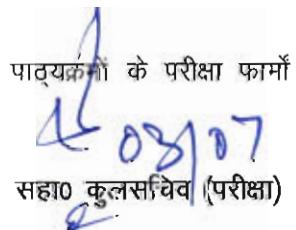 पाठ्यक्रमों के परीक्षा फार्मों
03/07
सहा0 कुलसचिव (परीक्षा)